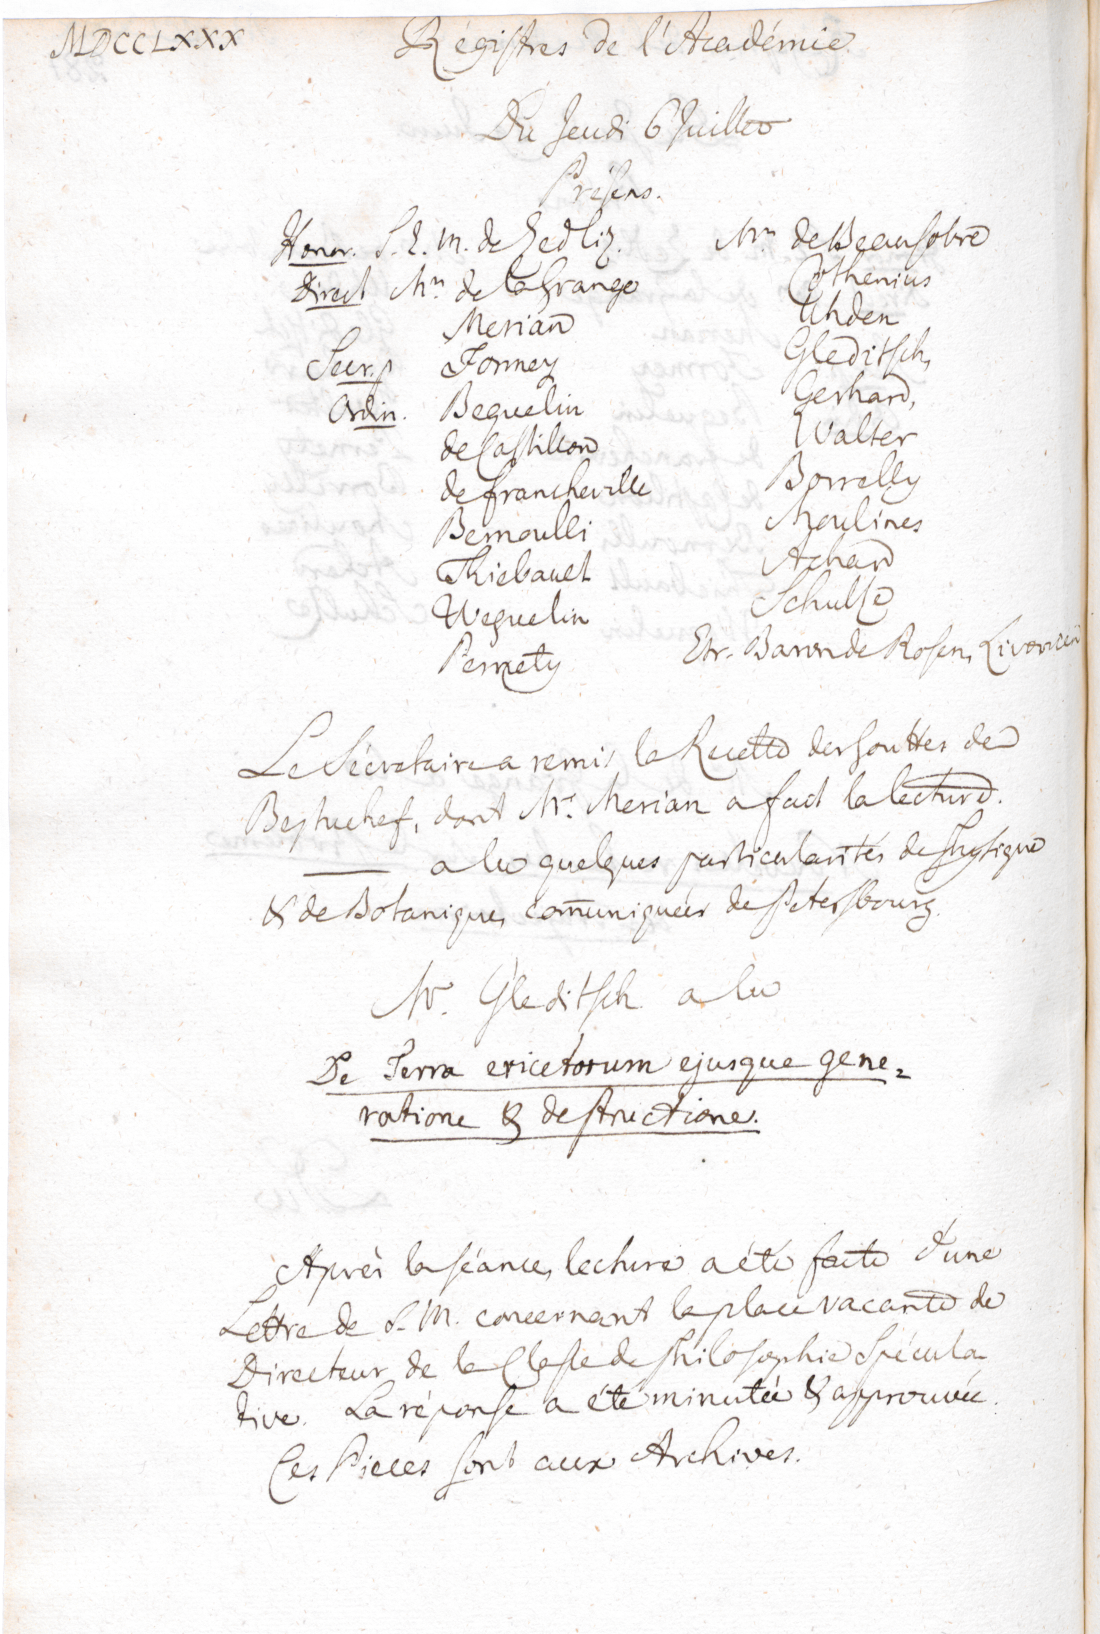 MDCCLXXX
Régistres de l'Académie
Du Jeudi 6 Juillet
Présens.
Honor. S. E. M. de Zedliz.
Direct Mrs de la Grange
Merian
Secr. p Formey
Ordin. Beguelin
de Castillon
de Francheville
Bernoulli
Thiebault
Weguelin
Pernety
Mrs de Beausobre
Cothenius
Uhden
Gleditsch,
Gerhard,
Walter
Borrelly
Moulines
Achard
Schulze
Etr. Baron de Rosen, Livonien
Le Sécretaire a remis la Recette des Gouttes de
Bestuchef, dont Mr. Merian a fait la lecture.
— a lu quelques particularités de Physique
& de Botanique, comuniquées de Petersbourg.
Mr. Gleditsch a lu
De Terra ericetorum ejusque gene=
ratione & destructione.
Après la séance, lecture a été faite d'une
Lettre de S. M. concernant la place vacante de
Directeur de la Classe de Philosophie Spécula
tive. La réponse a été minutée & approuvée.
Ces Pieces sont aux Archives.